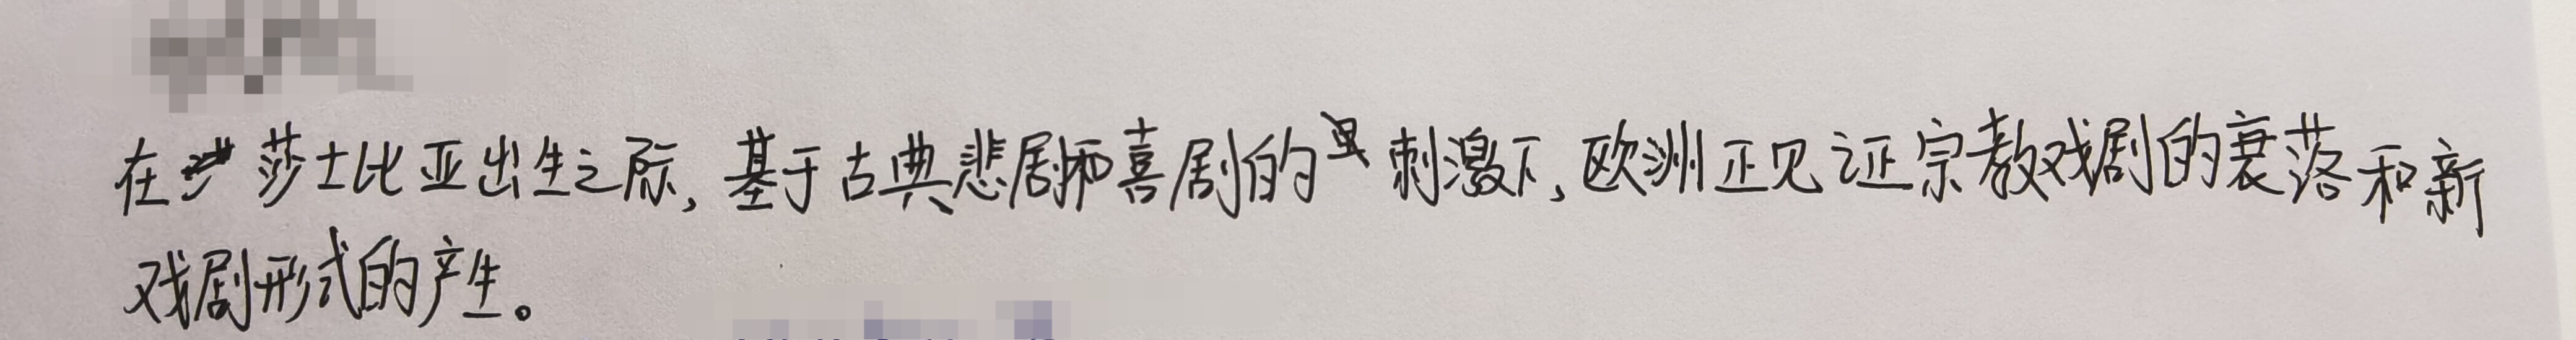 在莎士比亚出生之际，基于古典悲剧和喜剧的刺激下，欧洲正见证宗教戏剧的衰落和新
戏剧形式的产生。